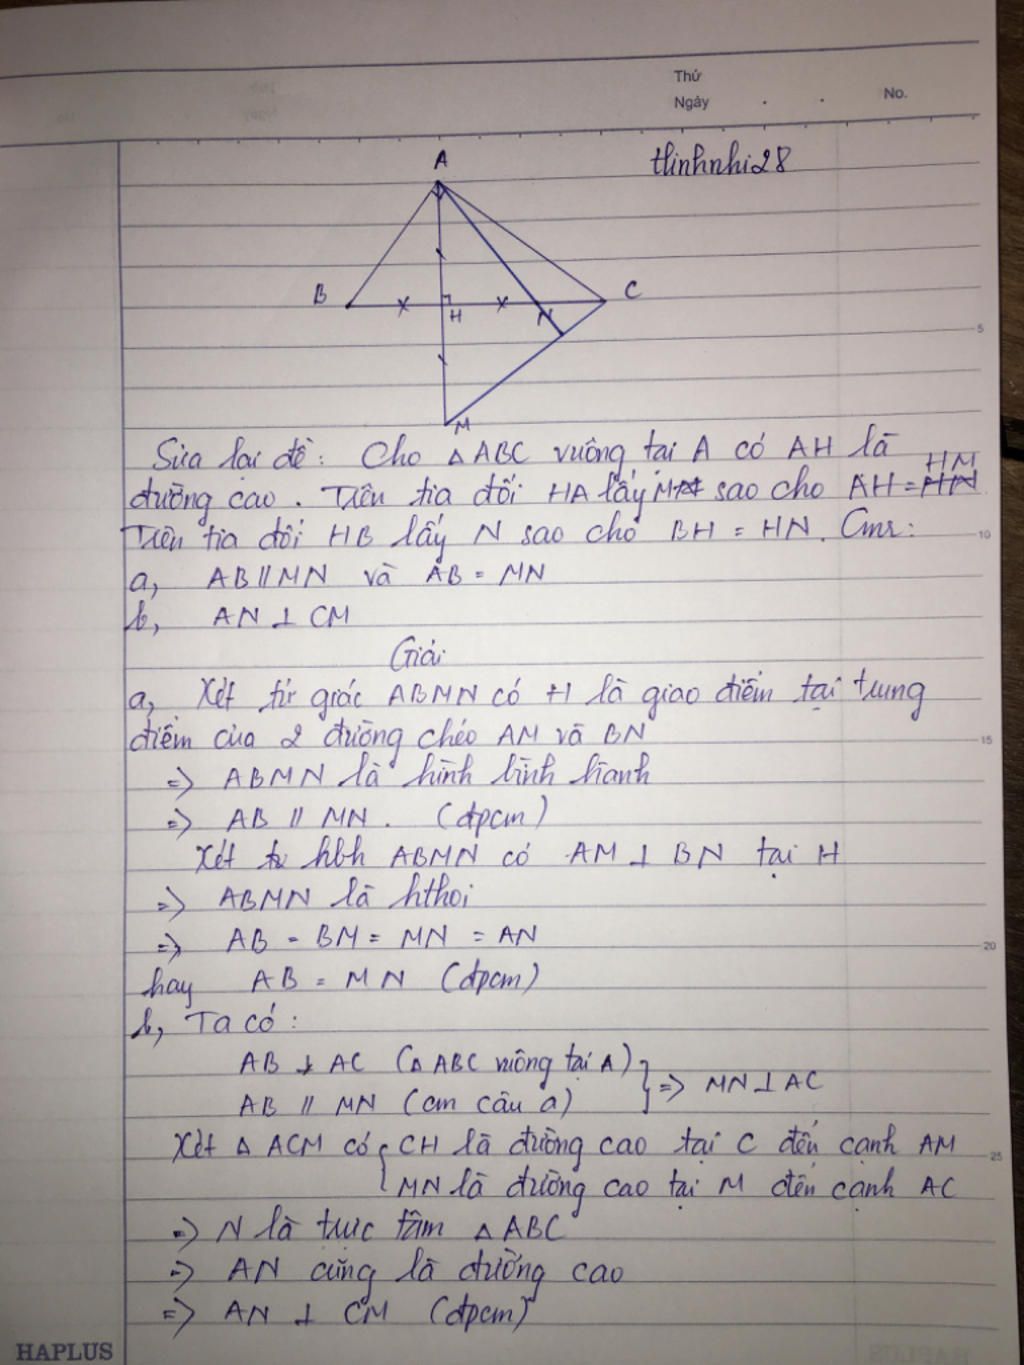 Thứ
Ngày . . No.
tlinhnhi28
A
B
C
H
N
M
5
Sửa lại đề: Cho △ABC vuông tại A có AH là
HM
đường cao. Trên tia đối HA lấy M sao cho AH = HN
Trên tia đối HB lấy N sao cho BH = HN. Cmr:
10
a, AB // MN và AB = MN
b, AN ⊥ CM
Giải
a, Xét tứ giác ABMN có H là giao điểm tại trung
điểm của 2 đường chéo AM và BN
15
=> ABMN là hình bình hành
=> AB // MN. (đpcm)
Xét hbh ABMN có AM ⊥ BN tại H
=> ABMN là hthoi
=> AB = BM = MN = AN
20
hay AB = MN (đpcm)
b, Ta có:
AB ⊥ AC (△ABC vuông tại A)
AB // MN (cm câu a)
} => MN ⊥ AC
Xét △ ACM có { CH là đường cao tại C đến cạnh AM
25
MN là đường cao tại M đến cạnh AC
=> N là trực tâm △ABC
=> AN cũng là đường cao
=> AN ⊥ CM (đpcm)
HAPLUS